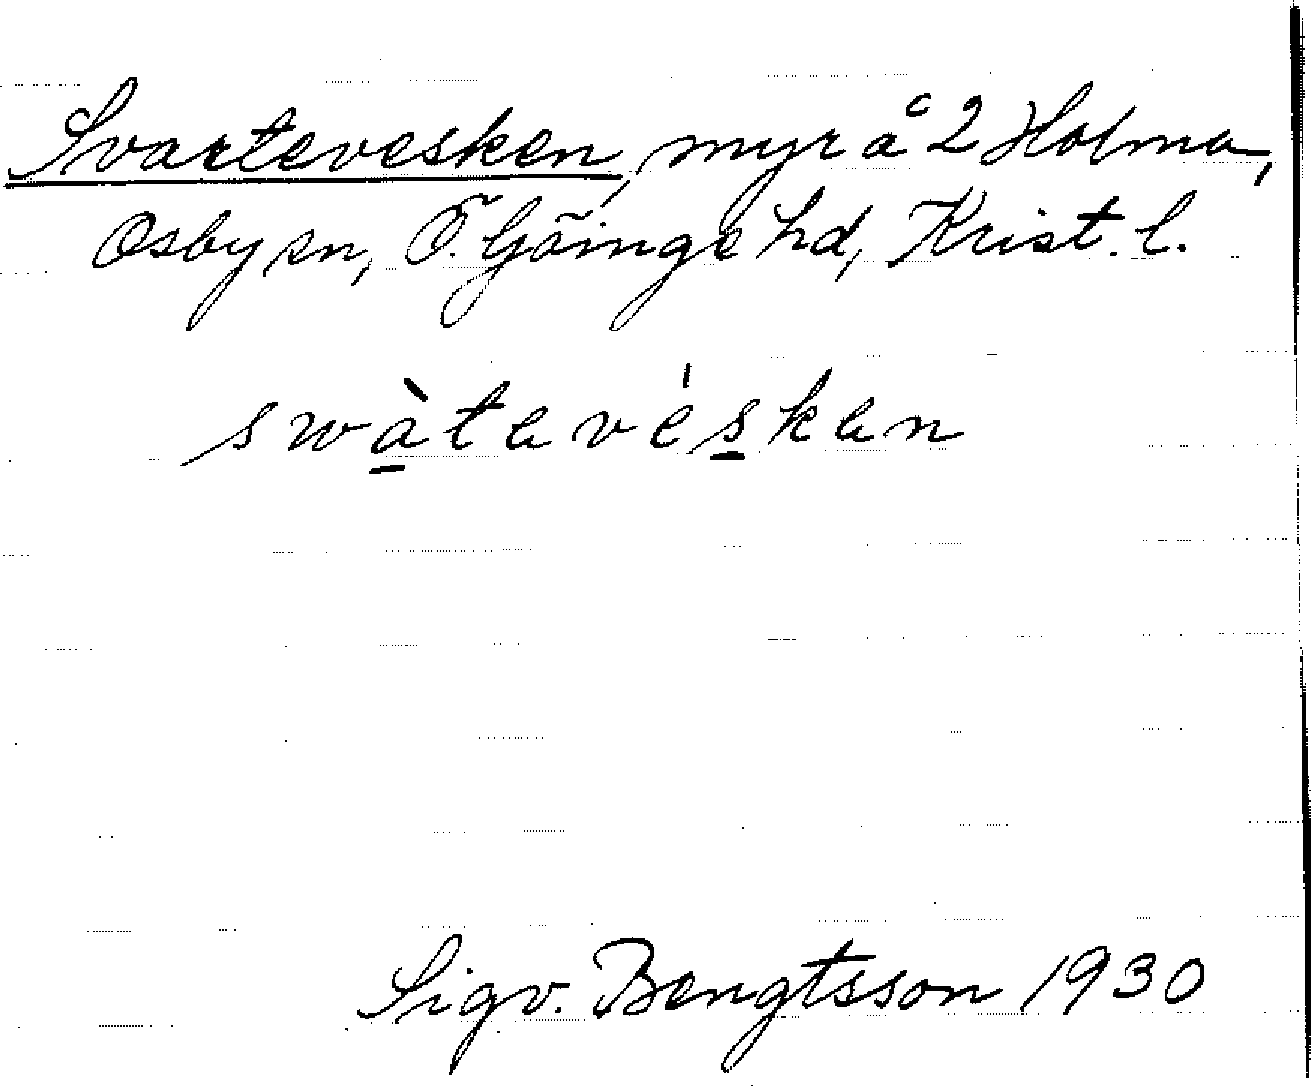 Svartevesken, myr å 2 Holma,
Osby sn, Ö. Göinge hd, Krist. l.
swàtevéskan
Sigv. Bengtsson 1930